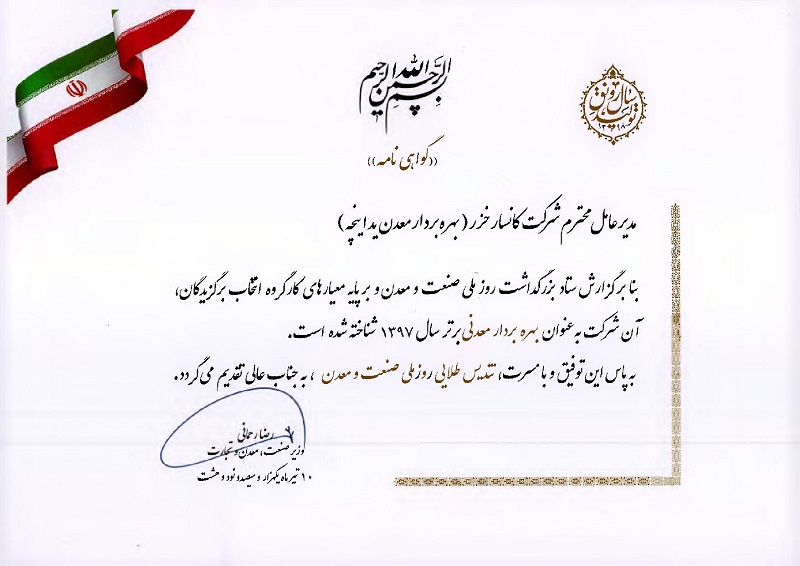 بسم الله الرحمن الرحیم
سال رونق تولید
۱۳۹۸
((گواهی نامه))
مدیر عامل محترم شرکت کانسار خزر (بهره بردار معدن ید اینچه)
بنا بر گزارش ستاد بزرگداشت روز ملی صنعت و معدن و بر پایه معیارهای کارگروه انتخاب برگزیدگان،
آن شرکت به عنوان بهره بردار معدنی برتر سال ۱۳۹۷ شناخته شده است.
به پاس این توفیق و با مسرت، تندیس طلایی روز ملی صنعت و معدن ، به جناب عالی تقدیم می گردد.
رضا رحمانی
وزیر صنعت، معدن و تجارت
۱۰ تیر ماه یکهزار و سیصد و نود و هشت